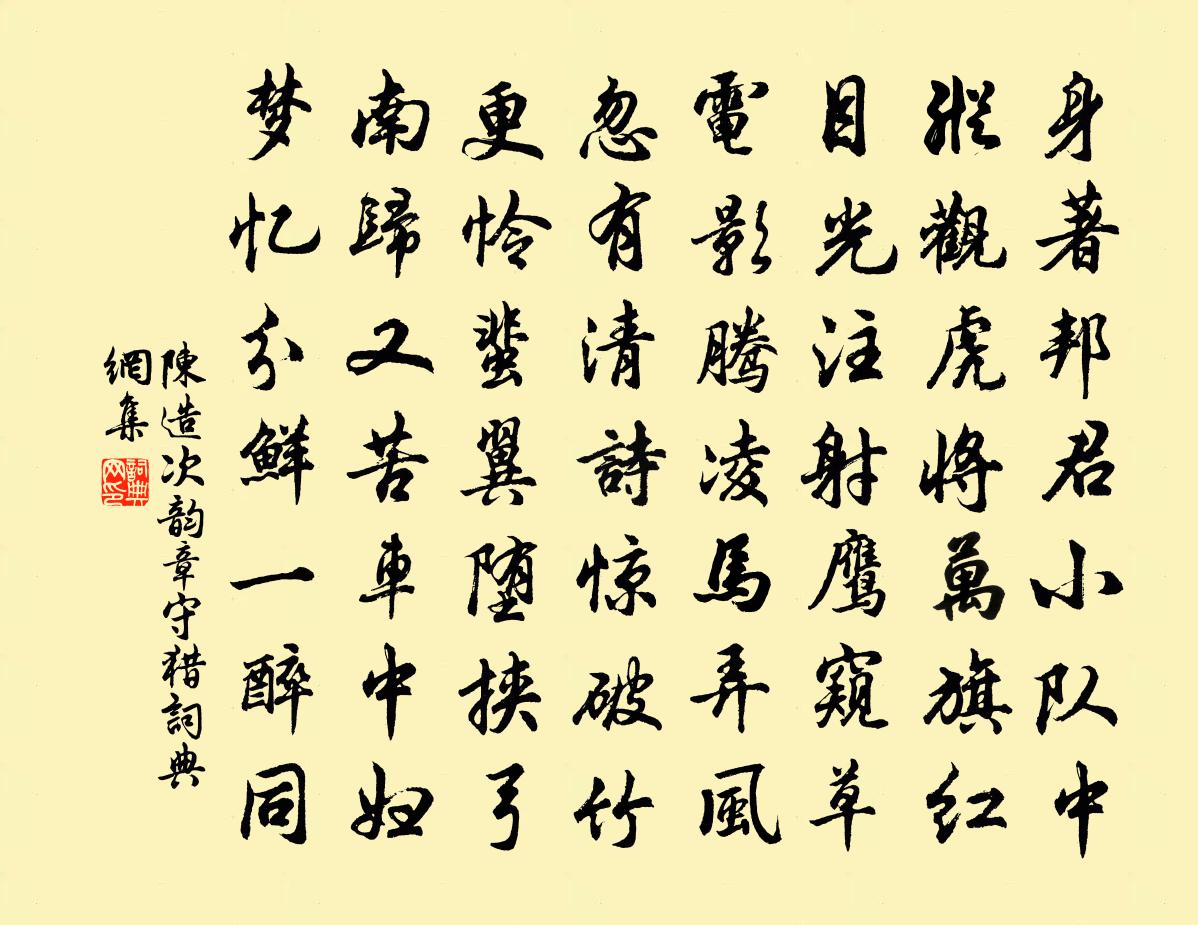 身著邦君小队中
縱觀虎將萬旗红
目光注射鹰窺草
電影騰凌馬弄風
忽有清詩惊破竹
更怜蜚翼堕挟弓
南歸又苦車中妇
梦忆分鮮一醉同
陳造次韵章守猎詞典
網集
詞典
网印